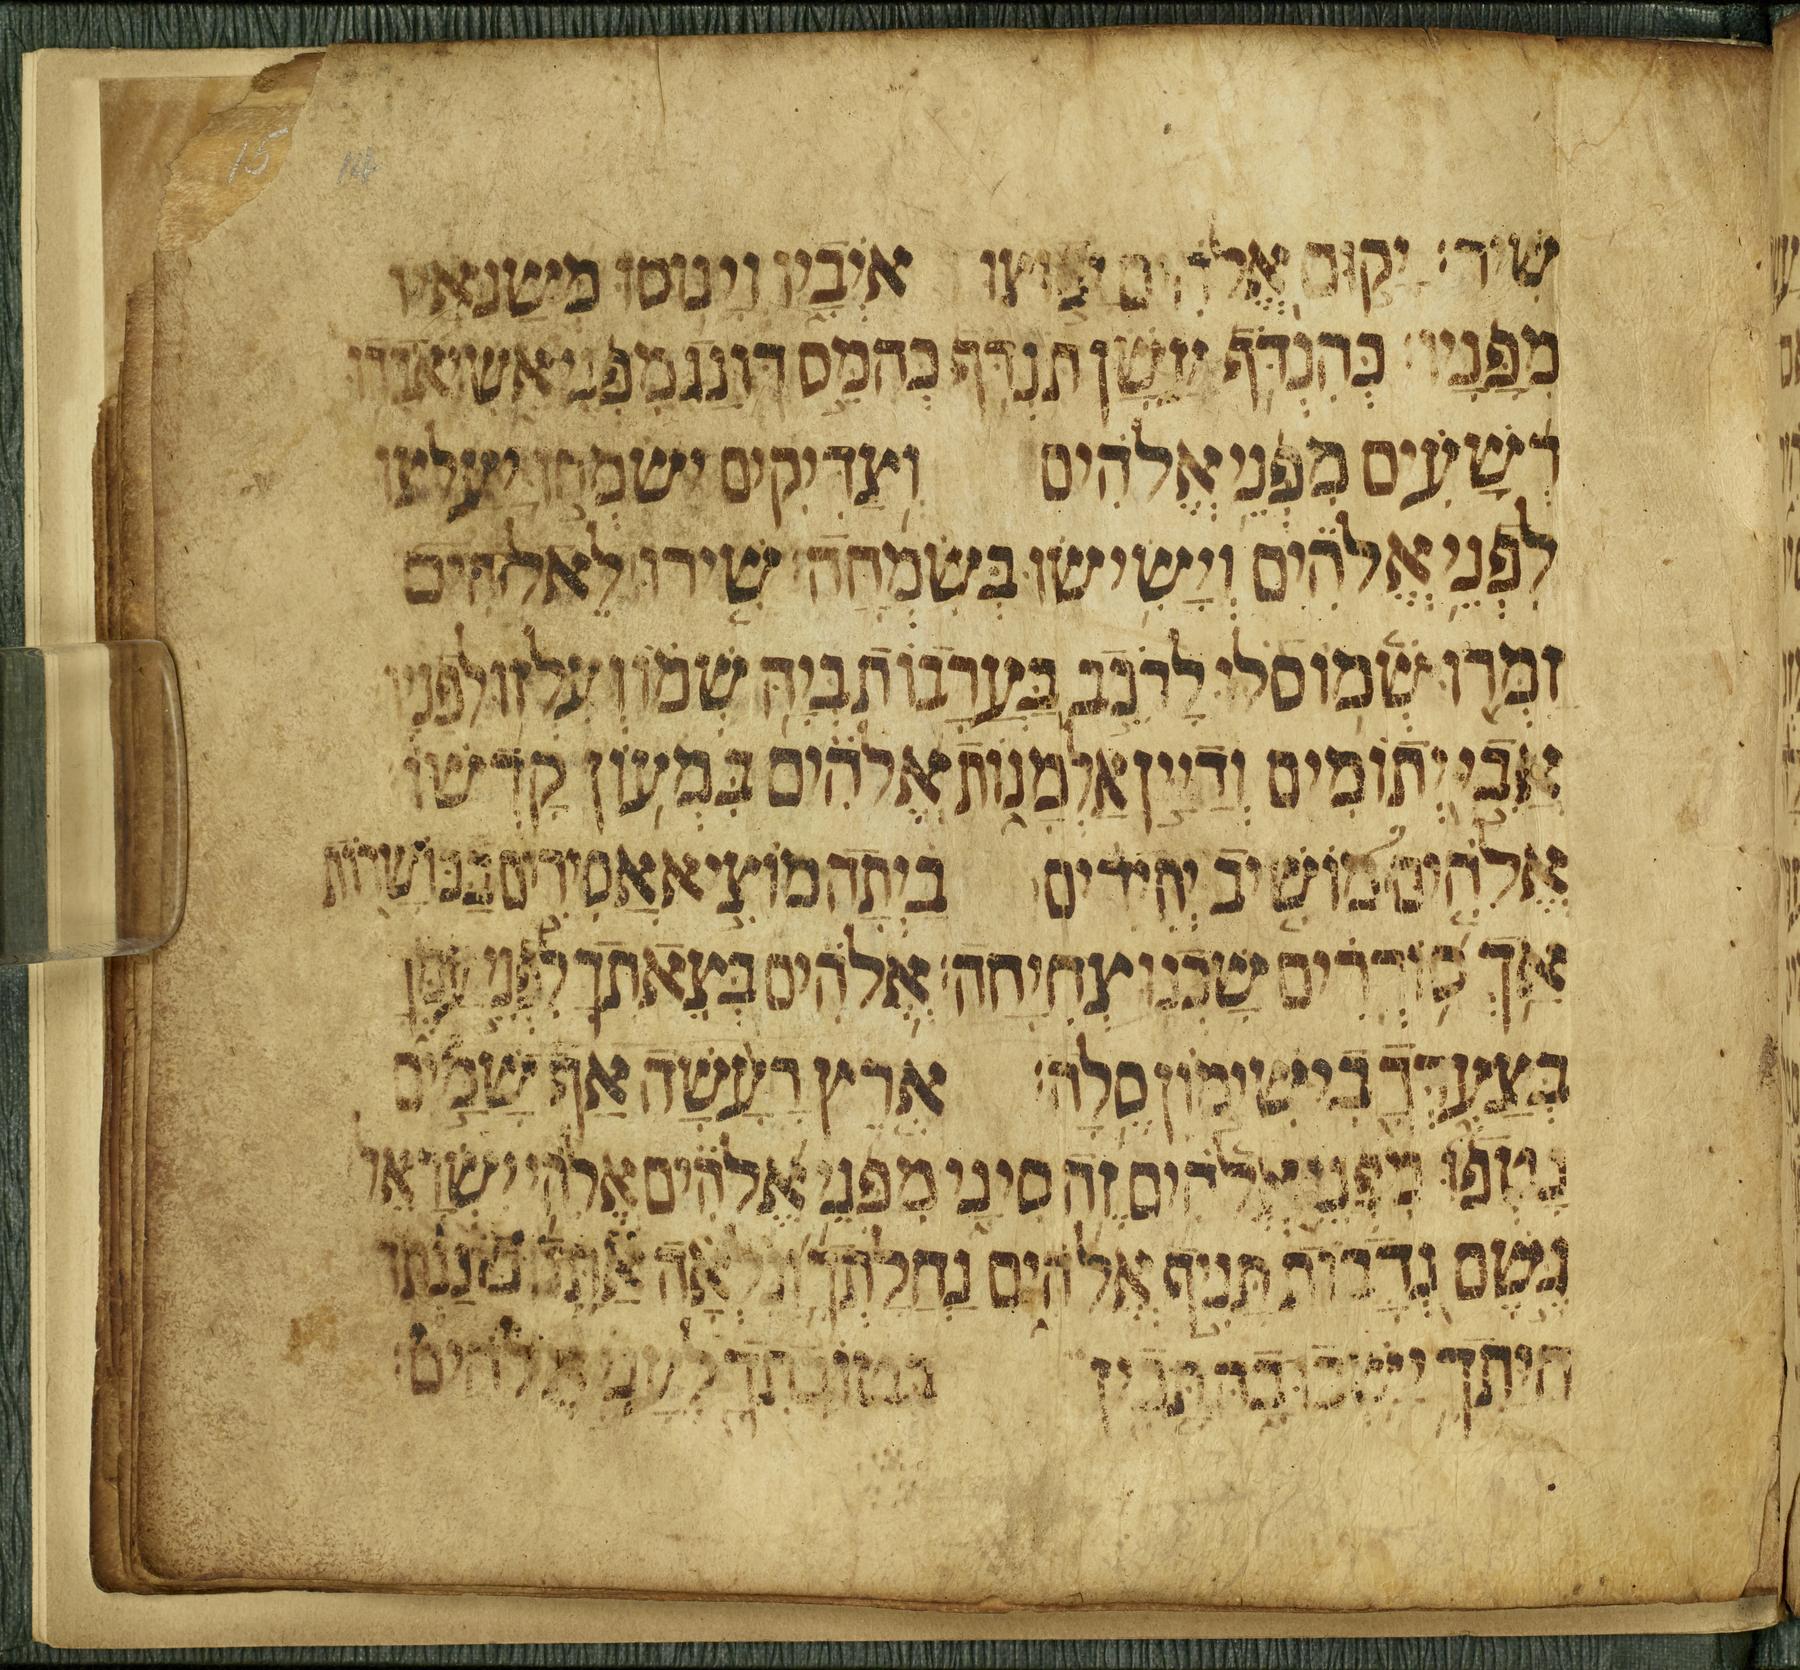 שִׁיר׃ יָקוּם אֱלֹהִים יָפוּצוּ אֹיְבָיו וְיָנוּסוּ מְשַׂנְאָיו
מִפָּנָיו׃ כְּהִנְדֹּף עָשָׁן תִּנְדֹּף כְּהִמֵּס דּוֹנַג מִפְּנֵי אֵשׁ יֹאבְדוּ
רְשָׁעִים מִפְּנֵי אֱלֹהִים וְצַדִּיקִים יִשְׂמְחוּ יַעַלְצוּ
לִפְנֵי אֱלֹהִים וְיָשִׂישׂוּ בְשִׂמְחָה׃ שִׁירוּ לֵאלֹהִים
זַמְּרוּ שְׁמוֹ סֹלּוּ לָרֹכֵב בָּעֲרָבוֹת בְּיָהּ שְׁמוֹ וְעִלְזוּ לְפָנָיו
אֲבִי יְתוֹמִים וְדַיַּן אַלְמָנוֹת אֱלֹהִים בִּמְעוֹן קָדְשׁוֹ
אֱלֹהִים מוֹשִׁיב יְחִידִים בַּיְתָה מוֹצִיא אֲסִירִים בַּכּוֹשָׁרוֹת
אַךְ סוֹרְרִים שָׁכְנוּ צְחִיחָה׃ אֱלֹהִים בְּצֵאתְךָ לִפְנֵי עַמֶּךָ
בְּצַעְדְּךָ בִישִׁימוֹן סֶלָה׃ אֶרֶץ רָעָשָׁה אַף שָׁמַיִם
נָטְפוּ מִפְּנֵי אֱלֹהִים זֶה סִינַי מִפְּנֵי אֱלֹהִים אֱלֹהֵי יִשְׂרָאֵל
גֶּשֶׁם נְדָבוֹת תָּנִיף אֱלֹהִים נַחֲלָתְךָ וְנִלְאָה אַתָּה כוֹנַנְתָּהּ
חַיָּתְךָ יָשְׁבוּ בָהּ תָּכִין בְּטוֹבָתְךָ לֶעָנִי אֱלֹהִים׃
15